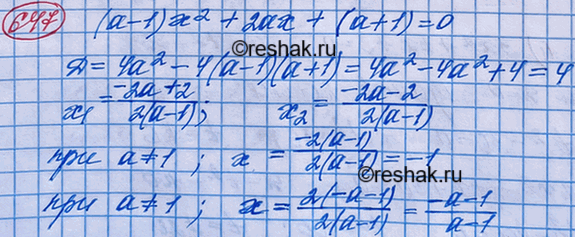 647 (a-1)x² + 2ax + (a+1) = 0
©reshak.ru
D = 4a² - 4(a-1)(a+1) = 4a² - 4a² + 4 = 4
x₁ = (-2a+2)/(2(a-1)); x₂ = (-2a-2)/(2(a-1))
при a≠1; x = (-2(a-1))/(2(a-1)) = -1
при a≠1; x = (2(-a-1))/(2(a-1)) = (-a-1)/(a-1)